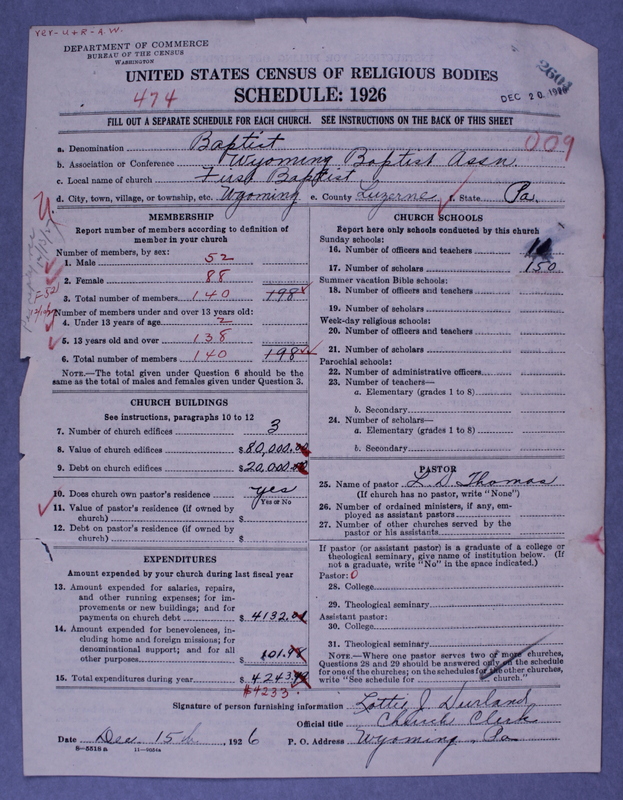 ver-U+R-A.W.
DEPARTMENT OF COMMERCE
BUREAU OF THE CENSUS
WASHINGTON
UNITED STATES CENSUS OF RELIGIOUS BODIES
474
SCHEDULE: 1926
2604
DEC 20. 1926
FILL OUT A SEPARATE SCHEDULE FOR EACH CHURCH. SEE INSTRUCTIONS ON THE BACK OF THIS SHEET
009
a. Denomination Baptist
b. Association or Conference Wyoming Baptist Assn
c. Local name of church First Baptist
d. City, town, village, or township, etc. Wyoming e. County Luzerne f. State Pa.
MEMBERSHIP
Report number of members according to definition of
member in your church
Number of members, by sex:
1. Male 52
2. Female 88
3. Total number of members 140 198
Number of members under and over 13 years old:
4. Under 13 years of age 2
5. 13 years old and over 138
6. Total number of members 140 198
NOTE.—The total given under Question 6 should be
same as the total of males and females given under Question 3.
CHURCH BUILDINGS
See instructions, paragraphs 10 to 12
7. Number of church edifices 3
8. Value of church edifices $80,000.00
9. Debt on church edifices $20,000.00
10. Does church own pastor's residence yes
Yes or No
11. Value of pastor's residence (if owned by
church) $
12. Debt on pastor's residence (if owned by
church) $
EXPENDITURES
Amount expended by your church during last fiscal year
13. Amount expended for salaries, repairs,
and other running expenses; for im-
provements or new buildings; and for
payments on church debt $4132.
14. Amount expended for benevolences, in-
cluding home and foreign missions; for
denominational support; and for all
other purposes 101.
15. Total expenditures during year $4243
$4233
CHURCH SCHOOLS
Report here only schools conducted by this church
Sunday schools:
16. Number of officers and teachers
17. Number of scholars 150
Summer vacation Bible schools:
18. Number of officers and teachers
19. Number of scholars
Week-day religious schools:
20. Number of officers and teachers
21. Number of scholars
Parochial schools:
22. Number of administrative officers
23. Number of teachers—
a. Elementary (grades 1 to 8)
b. Secondary
24. Number of scholars—
a. Elementary (grades 1 to 8)
b. Secondary
PASTOR
25. Name of pastor L. D. Thomas
(If church has no pastor, write "None")
26. Number of ordained ministers, if any, em-
ployed as assistant pastors
27. Number of other churches served by the
pastor or his assistants
If pastor (or assistant pastor) is a graduate of a college or
theological seminary, give name of institution below. (If
not a graduate, write "No" in the space indicated.)
Pastor: 0
28. College
29. Theological seminary
Assistant pastor:
30. College
31. Theological seminary
NOTE.—Where one pastor serves two or more churches,
Questions 28 and 29 should be answered only on the schedule
for one of the churches; on the schedules for the other churches,
write "See schedule for church."
Signature of person furnishing information Lottie J. Durland
Official title Church Clerk
Date Dec 15th, 1926 P. O. Address Wyoming, Pa
8—5518 a 11—9054a